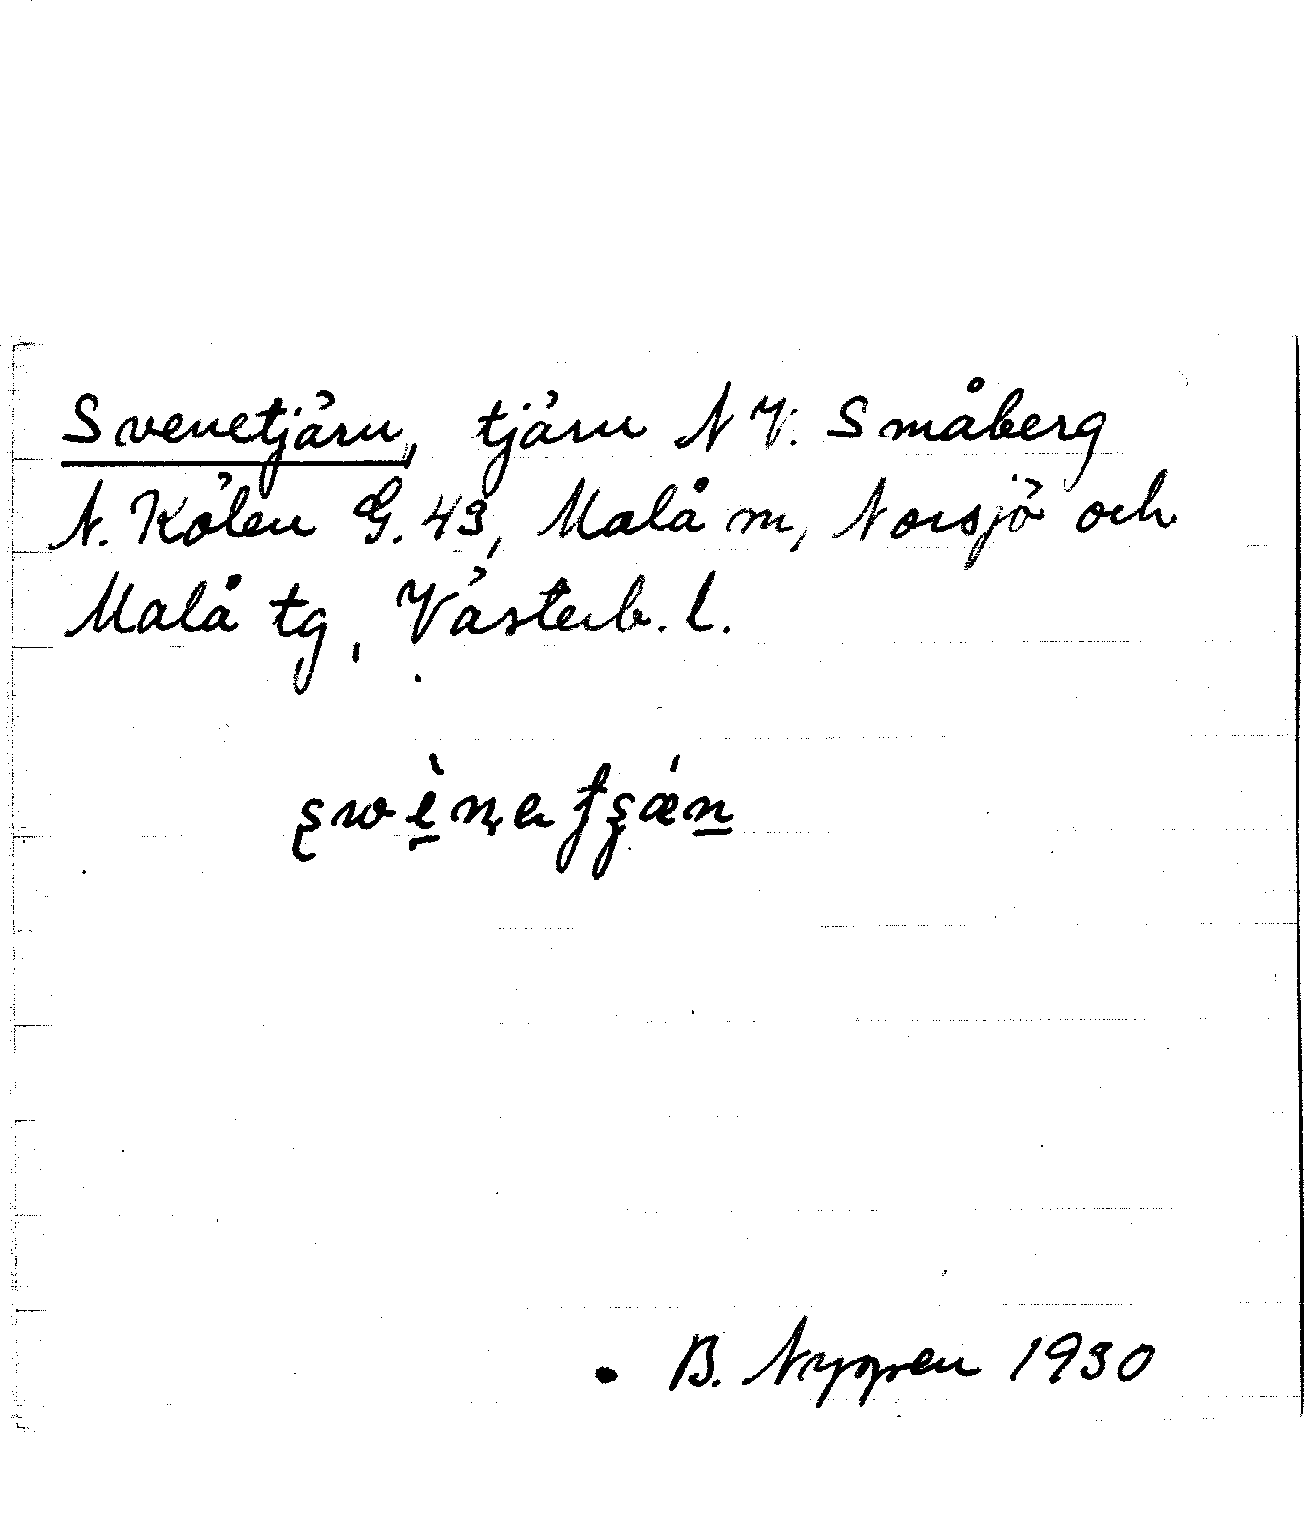 Svenetjärn, tjärn N V. Småberg
N. Kölen G. 43, Malå m, Norsjö och
Malå tg, Västerb. l.
B. Nyppen 1930